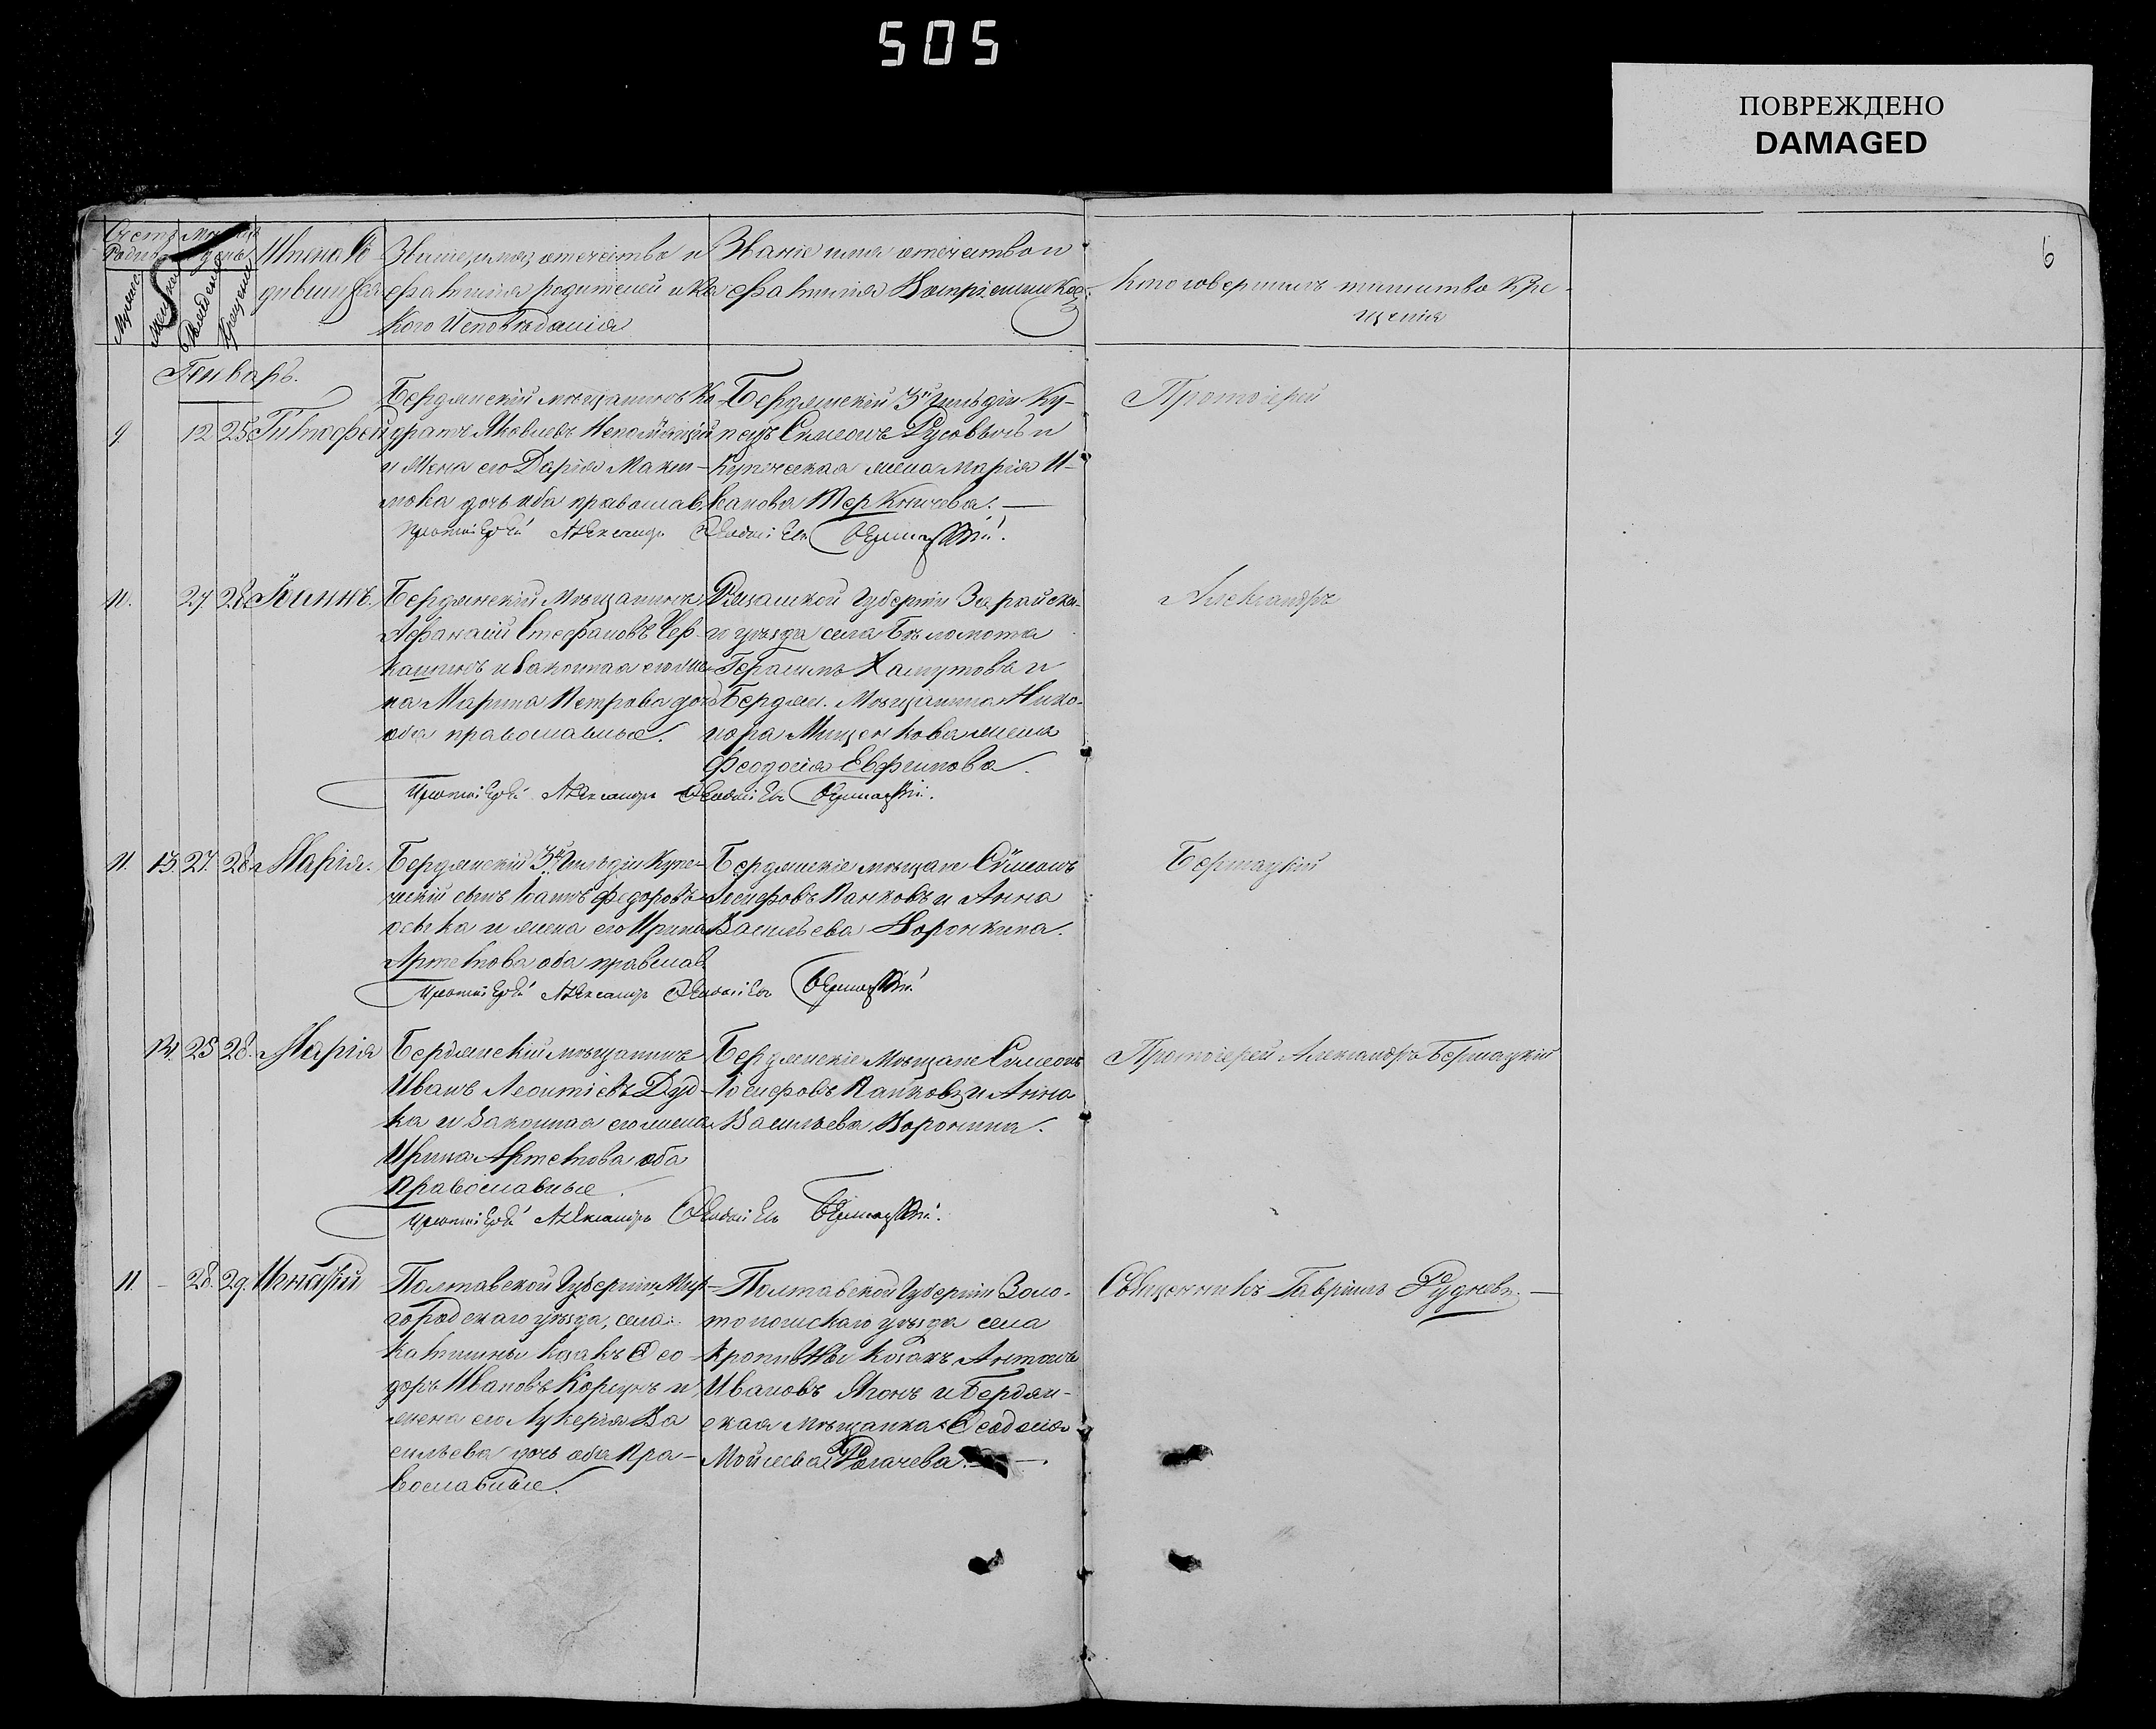 505
ПОВРЕЖДЕНО
DAMAGED
6
Счетъ
Родив
Мужска
Рожденія
Крещенія
Имена Ро
дившихся
Званіе имя, отечество и
фамилія родителей и ка
кого Исповѣданія
Званіе имя отечество и
фамилія Воспріемников
Кто совершилъ таинство Кре-
щенія
Генварь.
9 12 25 Тимофей
Бердянскій мѣщанинъ Ко
дратъ Яковлевъ
и Жена его Дарія Макси-
мова дочь оба православ.
Бердянскій 3й гильдіи Ку-
пецъ Симеонъ и
Купеческая жена Марія И-
ванова
Протоіерей
Протоіерей Александръ Бермацкій.
10. 27 28 Іоаннъ.
Бердянскій Мѣщанинъ
Афанасій Стефановъ Чер-
кашинъ и Законная его же
на Марина Петрова дочь
оба православные.
Рязанской Губерніи Зарайска-
го уѣзда села Бѣломота
Герасимъ Хамутовъ и
Бердян. Мѣщанина Нико-
нора Мищенкова жена
Феодосія Евфимова.
Александръ
Протоіерей Александръ Бермацкій.
11. 13. 27. 28. Марія.
Бердянскій 3й Гильдіи Купе-
ческій сынъ Іоаннъ Федоровъ
и жена его Ирина
Артемова оба правслав.
Бердянскіе мѣщане Симеонъ
Іосифовъ Панковъ и Анна
Васильева
Бермацкій
Протоіерей Александръ Бермацкій
14. 25 28. Марія
Бердянскій мѣщанинъ
Иванъ Леонтіевъ Дуд-
ка и Законная его жена
Ирина Артемова оба
Православные.
Бердянскіе Мѣщане Симеонъ
Іосифовъ Панковъ и Анна
Васильева Воронина.
Протоіерей Александръ Бермацкій
Протоіерей Александръ Бермацкій.
11. - 28. 29. Игнатій
Полтавской Губерніи, Мир-
городскаго уѣзда, села
козакъ Ѳео
доръ Ивановъ Коржъ и
жена его Лукерія Ва
сильева дочь оба Пра-
вославные.
Полтавской Губерніи Золо-
тоношскаго уѣзда села
Кропивны Козакъ Антонъ
Ивановъ и Бердян-
ская мѣщанка Ѳеодосія
Мойсеева Рогачева.
Священникъ Гавріилъ Рудневъ.